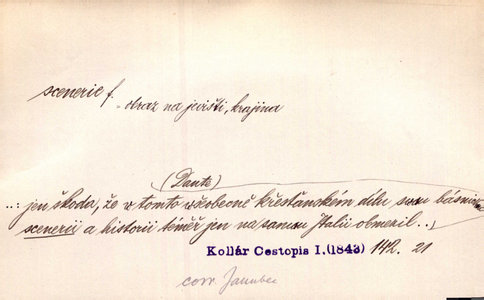 scenerie f.
= obraz na jevišti, krajina
(Dante)
..: jen škoda, že v tomto všeobecně křesťanském dílu svou básnickou
scenerii a historii téměř jen na samou Italii obmezil..
Kollár Cestopis I.(1843) 142. 21
corr. Janubec